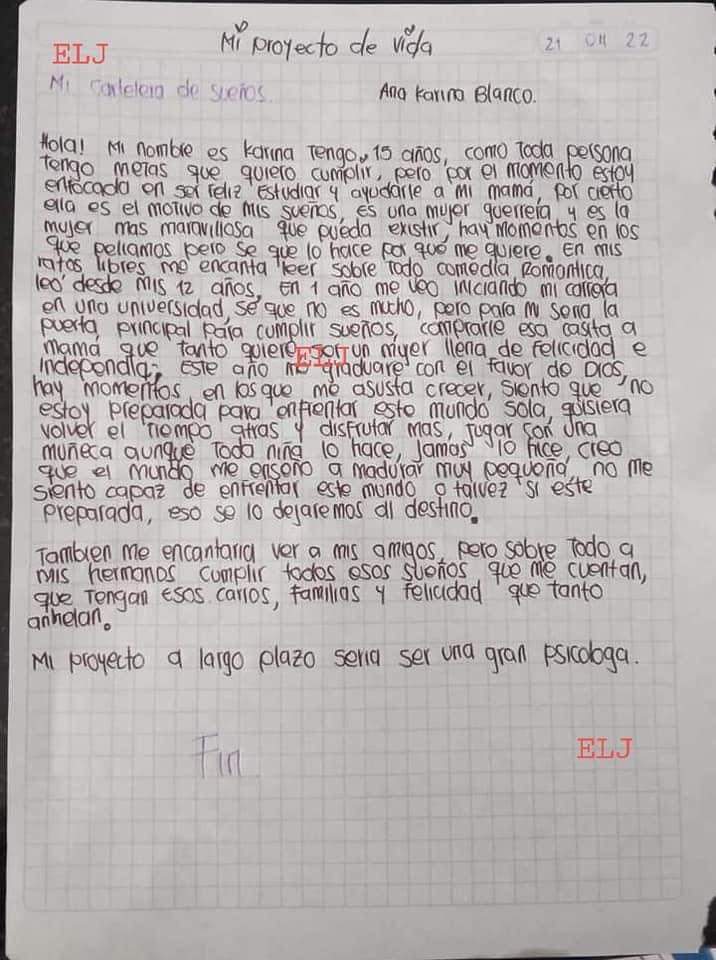 Mi proyecto de vida
21 04 22
ELJ
Mi cartelera de sueños.
Ana Karina Blanco.
Hola! Mi nombre es Karina Tengo, 15 años, como Toda persona
Tengo metas que quiero cumplir, pero por el momento estoy
enfocada en ser feliz Estudiar y ayudarle a mi mamá, por cierto
ella es el motivo de mis sueños, es una mujer guerrera, y es la
mujer mas maravillosa que pueda existir, hay momentos en los
que peliamos pero se que lo hace por qué me quiere. En mis
ratos libres me encanta leer sobre Todo comedia Romantica,
leo desde mis 12 años, En 1 año me veo iniciando mi carrera
en una universidad, sé que no es mucho, pero para mi seria la
puerta principal para cumplir sueños, comprarle esa casita a
mamá que tanto quiere, ser un myer llena de felicidad e
ELJ
Independia, Este año me graduare con el favor de Dios,
hay momentos en los que me asusta crecer, siento que no
estoy preparada para enfrentar este mundo sola, quisiera
volver el tiempo atras y disfrutar mas, Jugar con una
muñeca aunque Toda niña lo hace, jamas lo hice, creo
que el mundo me enseño a madurar muy pequeña, no me
siento capaz de enfrentar este mundo o talvez si este
preparada, eso se lo dejaremos al destino.
Tambien me encantaria ver a mis amigos, pero sobre Todo a
mis hermanos cumplir todos esos sueños que me cuentan,
que Tengan Esos carros, familias y felicidad que tanto
anhelan.
Mi proyecto a largo plazo seria ser una gran psicologa.
Fin
ELJ